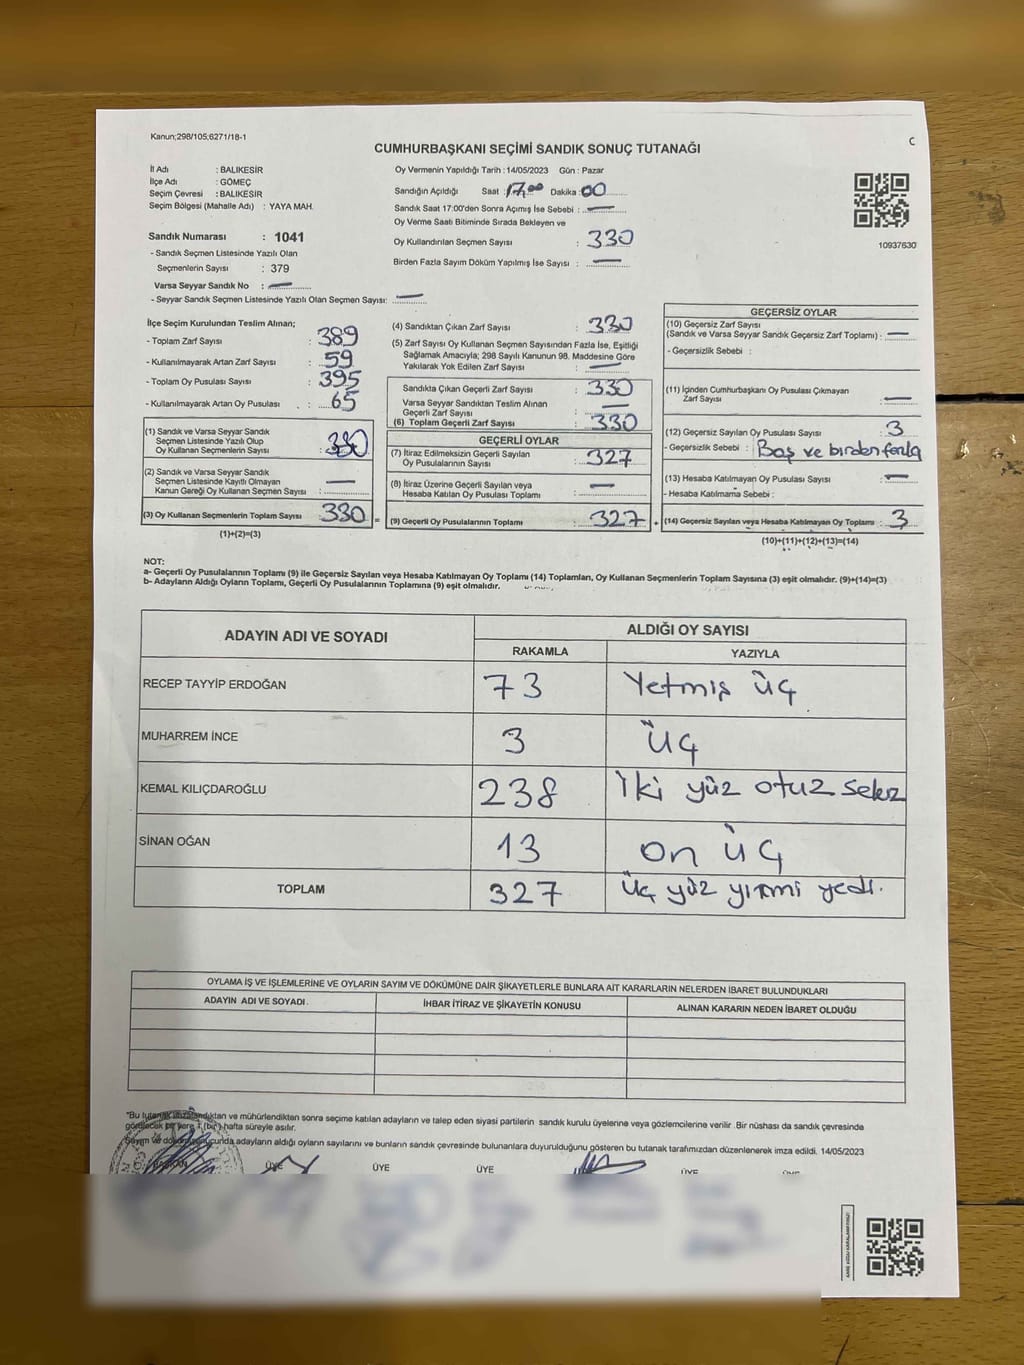 Kanun;298/105;6271/18-1
C
CUMHURBAŞKANI SEÇİMİ SANDIK SONUÇ TUTANAĞI
İl Adı : BALIKESİR
İlçe Adı : GÖMEÇ
Seçim Çevresi : BALIKESİR
Seçim Bölgesi (Mahalle Adı) : YAYA MAH.
Sandık Numarası : 1041
- Sandık Seçmen Listesinde Yazılı Olan
Seçmenlerin Sayısı : 379
Varsa Seyyar Sandık No : —
- Seyyar Sandık Seçmen Listesinde Yazılı Olan Seçmen Sayısı: —
Oy Vermenin Yapıldığı Tarih : 14/05/2023 Gün : Pazar
Sandığın Açıldığı Saat : 17,00 Dakika : 00
Sandık Saat 17:00'den Sonra Açımış İse Sebebi : —
Oy Verme Saati Bitiminde Sırada Bekleyen ve
Oy Kullandırılan Seçmen Sayısı : 330
Birden Fazla Sayım Döküm Yapılmış İse Sayısı : —
10937630
İlçe Seçim Kurulundan Teslim Alınan;
- Toplam Zarf Sayısı : 389
- Kullanılmayarak Artan Zarf Sayısı : 59
- Toplam Oy Pusulası Sayısı : 395
- Kullanılmayarak Artan Oy Pusulası : 65
(1) Sandık ve Varsa Seyyar Sandık
Seçmen Listesinde Yazılı Olup
Oy Kullanan Seçmenlerin Sayısı : 330
(2) Sandık ve Varsa Seyyar Sandık
Seçmen Listesinde Kayıtlı Olmayan
Kanun Gereği Oy Kullanan Seçmen Sayısı : —
(3) Oy Kullanan Seçmenlerin Toplam Sayısı : 330 =
(1)+(2)=(3)
(4) Sandıktan Çıkan Zarf Sayısı : 330
(5) Zarf Sayısı Oy Kullanan Seçmen Sayısından Fazla İse, Eşitliği
Sağlamak Amacıyla; 298 Sayılı Kanunun 98. Maddesine Göre
Yakılarak Yok Edilen Zarf Sayısı : —
Sandıkta Çıkan Geçerli Zarf Sayısı : 330
Varsa Seyyar Sandıktan Teslim Alınan
Geçerli Zarf Sayısı : —
(6) Toplam Geçerli Zarf Sayısı : 330
GEÇERLİ OYLAR
(7) İtiraz Edilmeksizin Geçerli Sayılan
Oy Pusulalarının Sayısı : 327
(8) İtiraz Üzerine Geçerli Sayılan veya
Hesaba Katılan Oy Pusulası Toplamı : —
(9) Geçerli Oy Pusulalarının Toplamı : 327 +
GEÇERSİZ OYLAR
(10) Geçersiz Zarf Sayısı
(Sandık ve Varsa Seyyar Sandık Geçersiz Zarf Toplamı) : —
- Geçersizlik Sebebi :
(11) İçinden Cumhurbaşkanı Oy Pusulası Çıkmayan
Zarf Sayısı : —
(12) Geçersiz Sayılan Oy Pusulası Sayısı : 3
- Geçersizlik Sebebi : Boş ve birden fazla
(13) Hesaba Katılmayan Oy Pusulası Sayısı : —
- Hesaba Katılmama Sebebi :
(14) Geçersiz Sayılan veya Hesaba Katılmayan Oy Toplamı : 3
(10)+(11)+(12)+(13)=(14)
NOT:
a- Geçerli Oy Pusulalarının Toplamı (9) ile Geçersiz Sayılan veya Hesaba Katılmayan Oy Toplamı (14) Toplamları, Oy Kullanan Seçmenlerin Toplam Sayısına (3) eşit olmalıdır. (9)+(14)=(3)
b- Adayların Aldığı Oyların Toplamı, Geçerli Oy Pusulalarının Toplamına (9) eşit olmalıdır.
ADAYIN ADI VE SOYADI
ALDIĞI OY SAYISI
RAKAMLA YAZIYLA
RECEP TAYYİP ERDOĞAN 73 Yetmiş üç
MUHARREM İNCE 3 üç
KEMAL KILIÇDAROĞLU 238 İki yüz otuz sekiz
SİNAN OĞAN 13 on üç
TOPLAM 327 üç yüz yirmi yedi.
OYLAMA İŞ VE İŞLEMLERİNE VE OYLARIN SAYIM VE DÖKÜMÜNE DAİR ŞİKAYETLERLE BUNLARA AİT KARARLARIN NELERDEN İBARET BULUNDUKLARI
ADAYIN ADI VE SOYADI İHBAR İTİRAZ VE ŞİKAYETİN KONUSU ALINAN KARARIN NEDEN İBARET OLDUĞU
"Bu tutanak imzalandıktan ve mühürlendikten sonra seçime katılan adayların ve talep eden siyasi partilerin sandık kurulu üyelerine veya gözlemcilerine verilir. Bir nüshası da sandık çevresinde
görülecek bir yere 1 (bir) hafta süreyle asılır.
Sayım ve döküm sonucunda adayların aldığı oyların sayılarını ve bunların sandık çevresinde bulunanlara duyurulduğunu gösteren bu tutanak tarafımızdan düzenlenerek imza edildi. 14/05/2023
BAŞKAN ÜYE ÜYE ÜYE ÜYE ÜYE